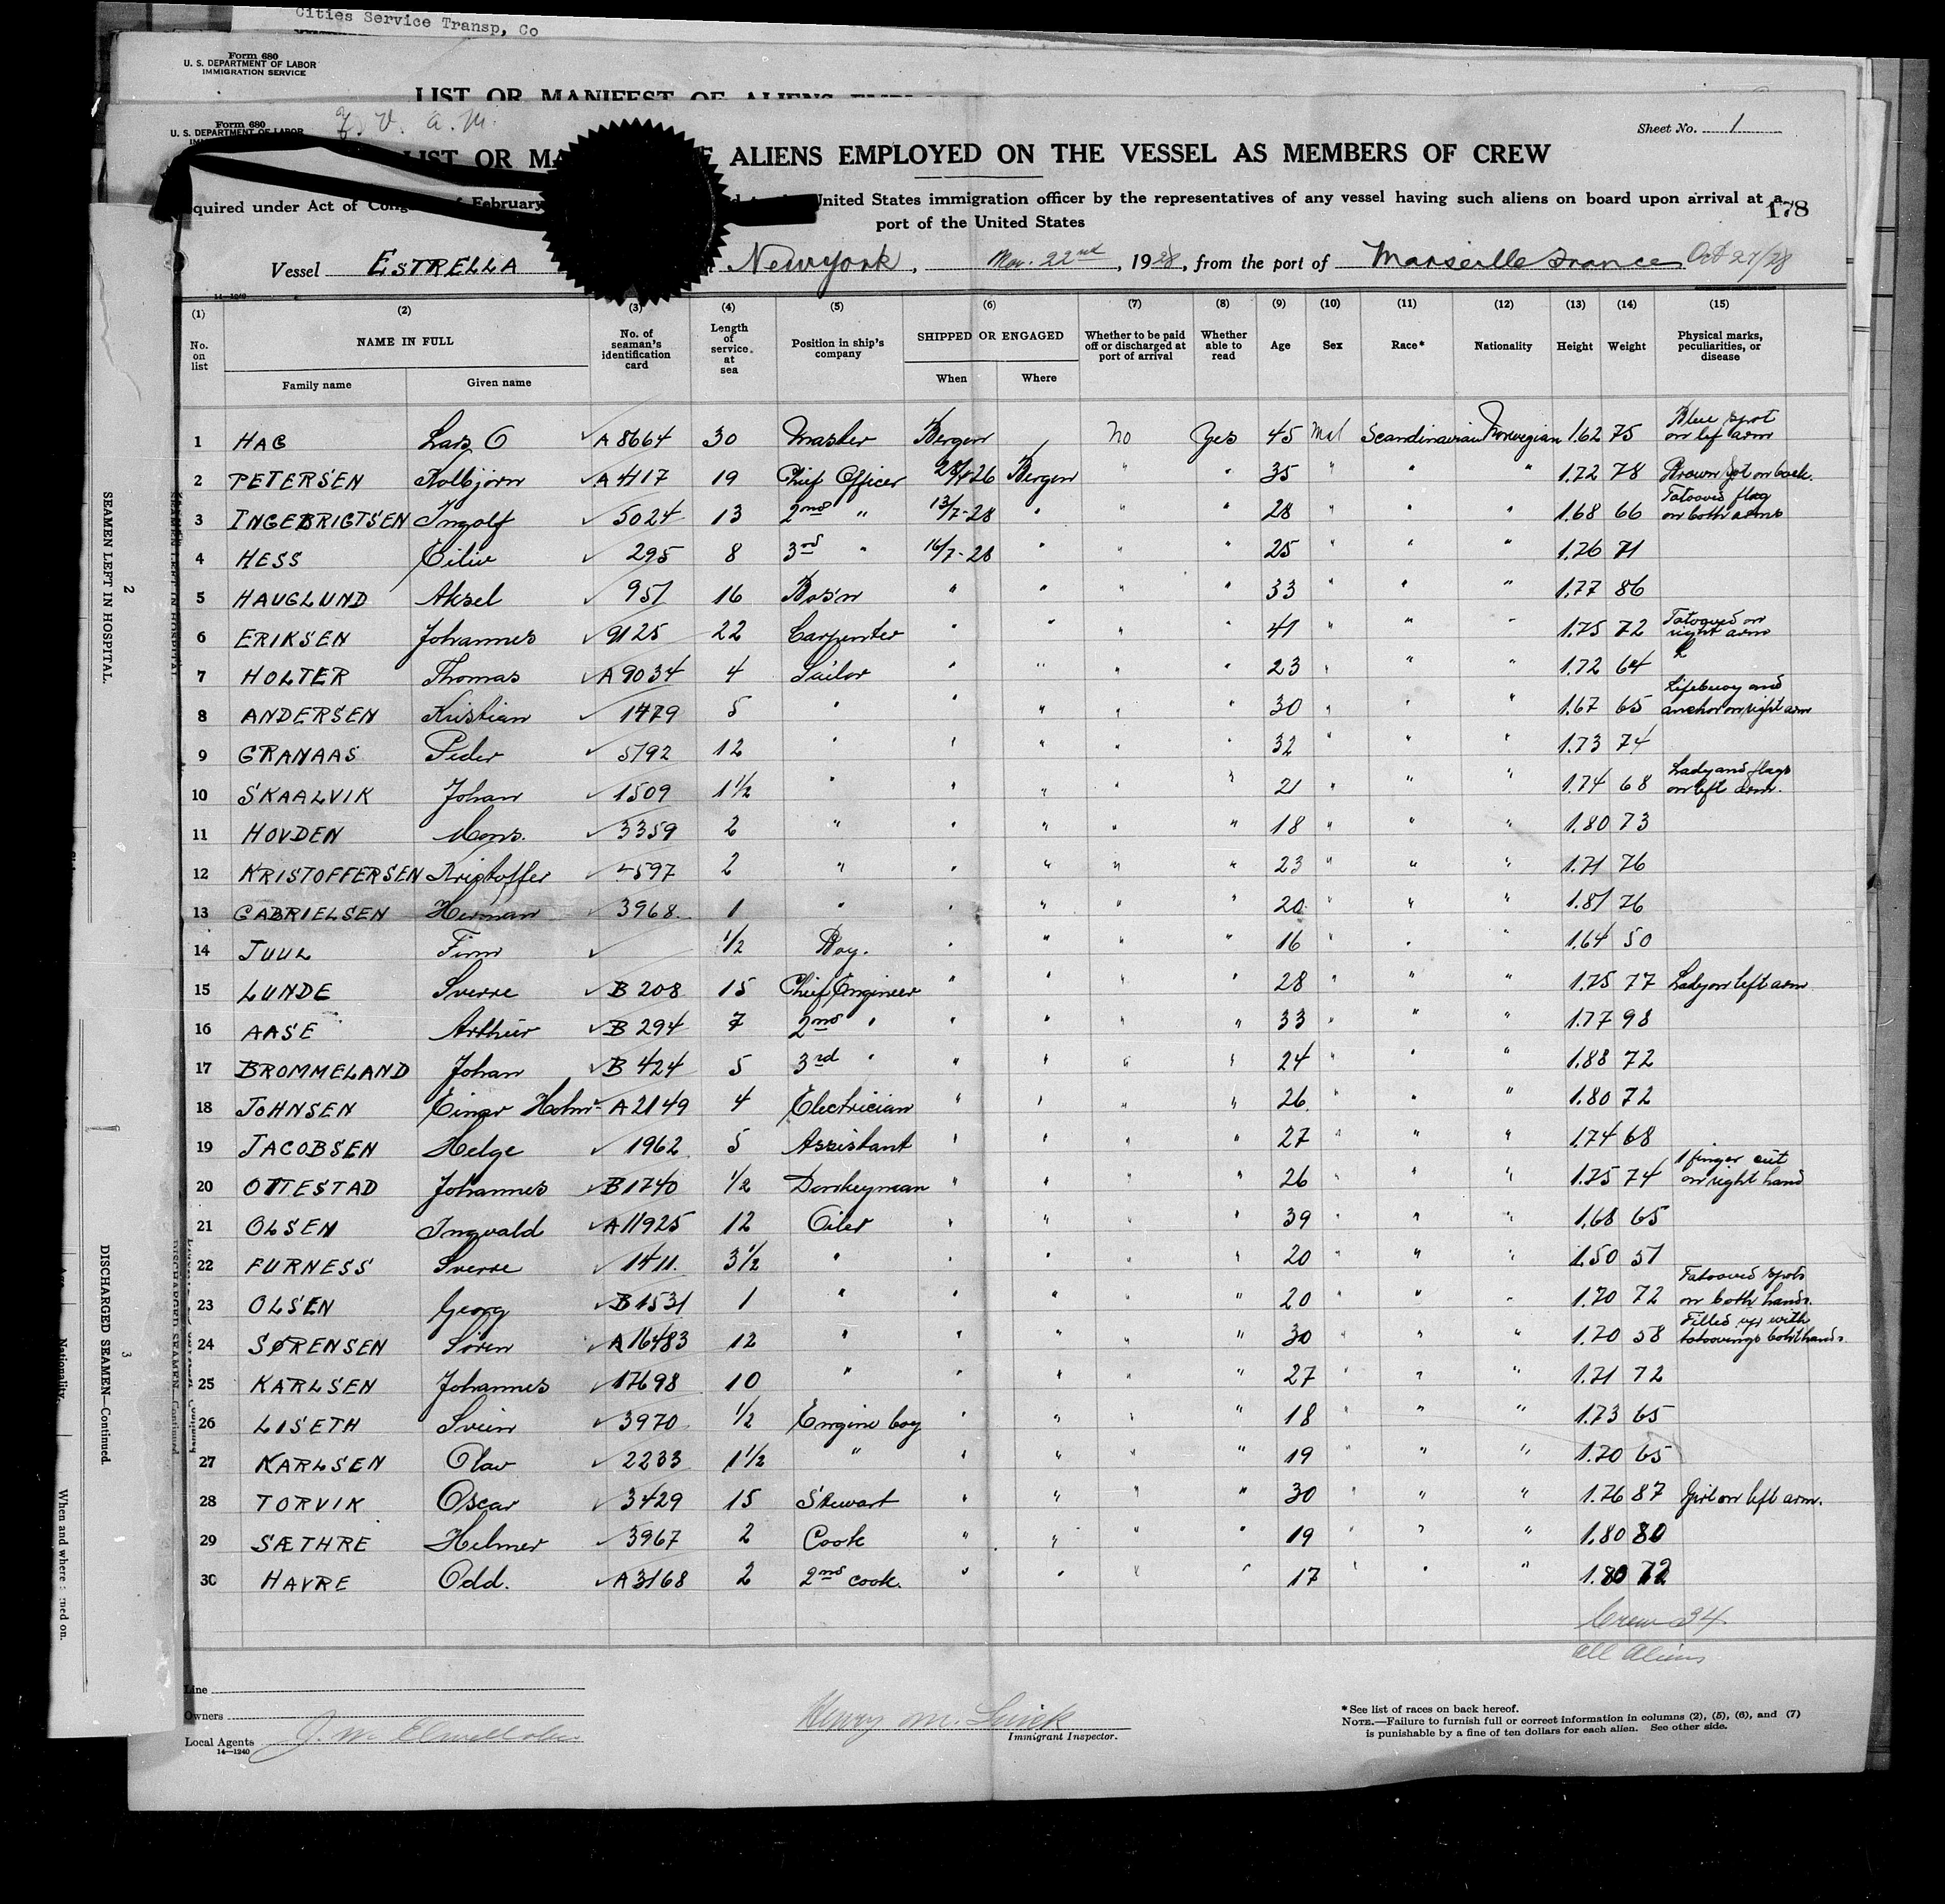 Cities Service Transp, Co
Form 680
U. S. DEPARTMENT OF LABOR
IMMIGRATION SERVICE
LIST OR MANIFEST OF ALIENS
Form 680
U. S. DEPARTMENT OF LABOR
Sheet No. 1
LIST OR MA ALIENS EMPLOYED ON THE VESSEL AS MEMBERS OF CREW
quired under Act of Cong February United States immigration officer by the representatives of any vessel having such aliens on board upon arrival at a
port of the United States
178
Vessel ESTRELLA New York, Nov. 22nd, 1928, from the port of Marseille France Oct 27/28
(1) (2) (3) (4) (5) (6) (7) (8) (9) (10) (11) (12) (13) (14) (15)
No. on list NAME IN FULL Family name Given name No. of seaman's identification card Length of service at sea Position in ship's company SHIPPED OR ENGAGED When Where Whether to be paid off or discharged at port of arrival Whether able to read Age Sex Race* Nationality Height Weight Physical marks, peculiarities, or disease
1 HAG Lars O A 8664 30 Master Bergen no Yes 45 Mal Scandinavian Norwegian 1.62 75 Blue spot on lef arm
2 PETERSEN Kolbjörn A 4417 19 Chief Officer 26 Bergen " " 35 " " " 1.72 78 Brown on back.
3 INGEBRIGTSEN Ingolf 5024 13 2nd " 13/7-28 " " " 28 " " " 1.68 66 Tatooved flag on both arms
4 HESS Eiliv 295 8 3rd " 16/7-28 " " " 25 " " " 1.76 71
5 HAUGLUND Aksel 951 16 Bos'n " " " " 33 " " " 1.77 86
6 ERIKSEN Johannes 9125 22 Carpenter " " " " 41 " " " 1.75 72 Tatooved on right arm
7 HOLTER Thomas A 9034 4 Sailor " " " " 23 " " " 1.72 64
8 ANDERSEN Kristian 1479 5 " " " " " 30 " " " 1.67 65 Lifebuoy and anchor on right arm
9 GRANAAS Peder 5792 12 " " " " " 32 " " " 1.73 74
10 SKAALVIK Johan 1509 1½ " " " " " 21 " " " 1.74 68 Lady and flags on left arm.
11 HOVDEN Mons. 3359 2 " " " " " 18 " " " 1.80 73
12 KRISTOFFERSEN Kristoffer 597 2 " " " " " 23 " " " 1.71 76
13 GABRIELSEN Herman 3968 1 " " " " " 20 " " " 1.81 76
14 JUUL Finn ½ Boy. " " " " 16 " " " 1.64 50
15 LUNDE Sverre B 208 15 Chief Engineer " " " " 28 " " " 1.75 77 Lady on left arm
16 AASE Arthur B 294 7 2nd " " " " " 33 " " " 1.77 98
17 BROMMELAND Johan B 424 5 3rd " " " " " 24 " " " 1.88 72
18 JOHNSEN Einar Holm- A 2149 4 Electrician " " " " 26 " " " 1.80 72
19 JACOBSEN Helge 1962 5 Assistant " " " " 27 " " " 1.74 68
20 OTTESTAD Johannes B 1740 ½ Donkeyman " " " " 26 " " " 1.75 74 1 finger cut on right hand
21 OLSEN Ingvald A 11925 12 Oiler " " " " 39 " " " 1.68 65
22 FURNESS Sverre 1411. 3½ " " " " " 20 " " " 1.50 51
23 OLSEN Georg B 1531 1 " " " " " 20 " " " 1.70 72 Tatooved spots on both hands.
24 SØRENSEN Sören A 16483 12 " " " " " 30 " " " 1.70 58 Filled up with tatoovings both hands
25 KARLSEN Johannes 17698 10 " " " " " 27 " " " 1.71 72
26 LISETH Svein 3970 ½ Engine boy " " " " 18 " " " 1.73 65
27 KARLSEN Olav 2233 1½ " " " " " 19 " " " 1.70 65
28 TORVIK Oscar 3429 15 Stewart " " " " 30 " " " 1.76 87 Girl on left arm.
29 SÆTHRE Helmer 3967 2 Cook " " " " 19 " " " 1.80 80
30 HAVRE Odd. A 3168 2 2nd cook. " " " " 17 " " " 1.80 72
Crew 34
all Aliens
Line
Owners
Local Agents
14—1240
Henry M.
Immigrant Inspector.
*See list of races on back hereof.
NOTE.—Failure to furnish full or correct information in columns (2), (5), (6), and (7)
is punishable by a fine of ten dollars for each alien. See other side.
SEAMEN LEFT IN HOSPITAL.
2
DISCHARGED SEAMEN—Continued.
3
Nationality.
When and where